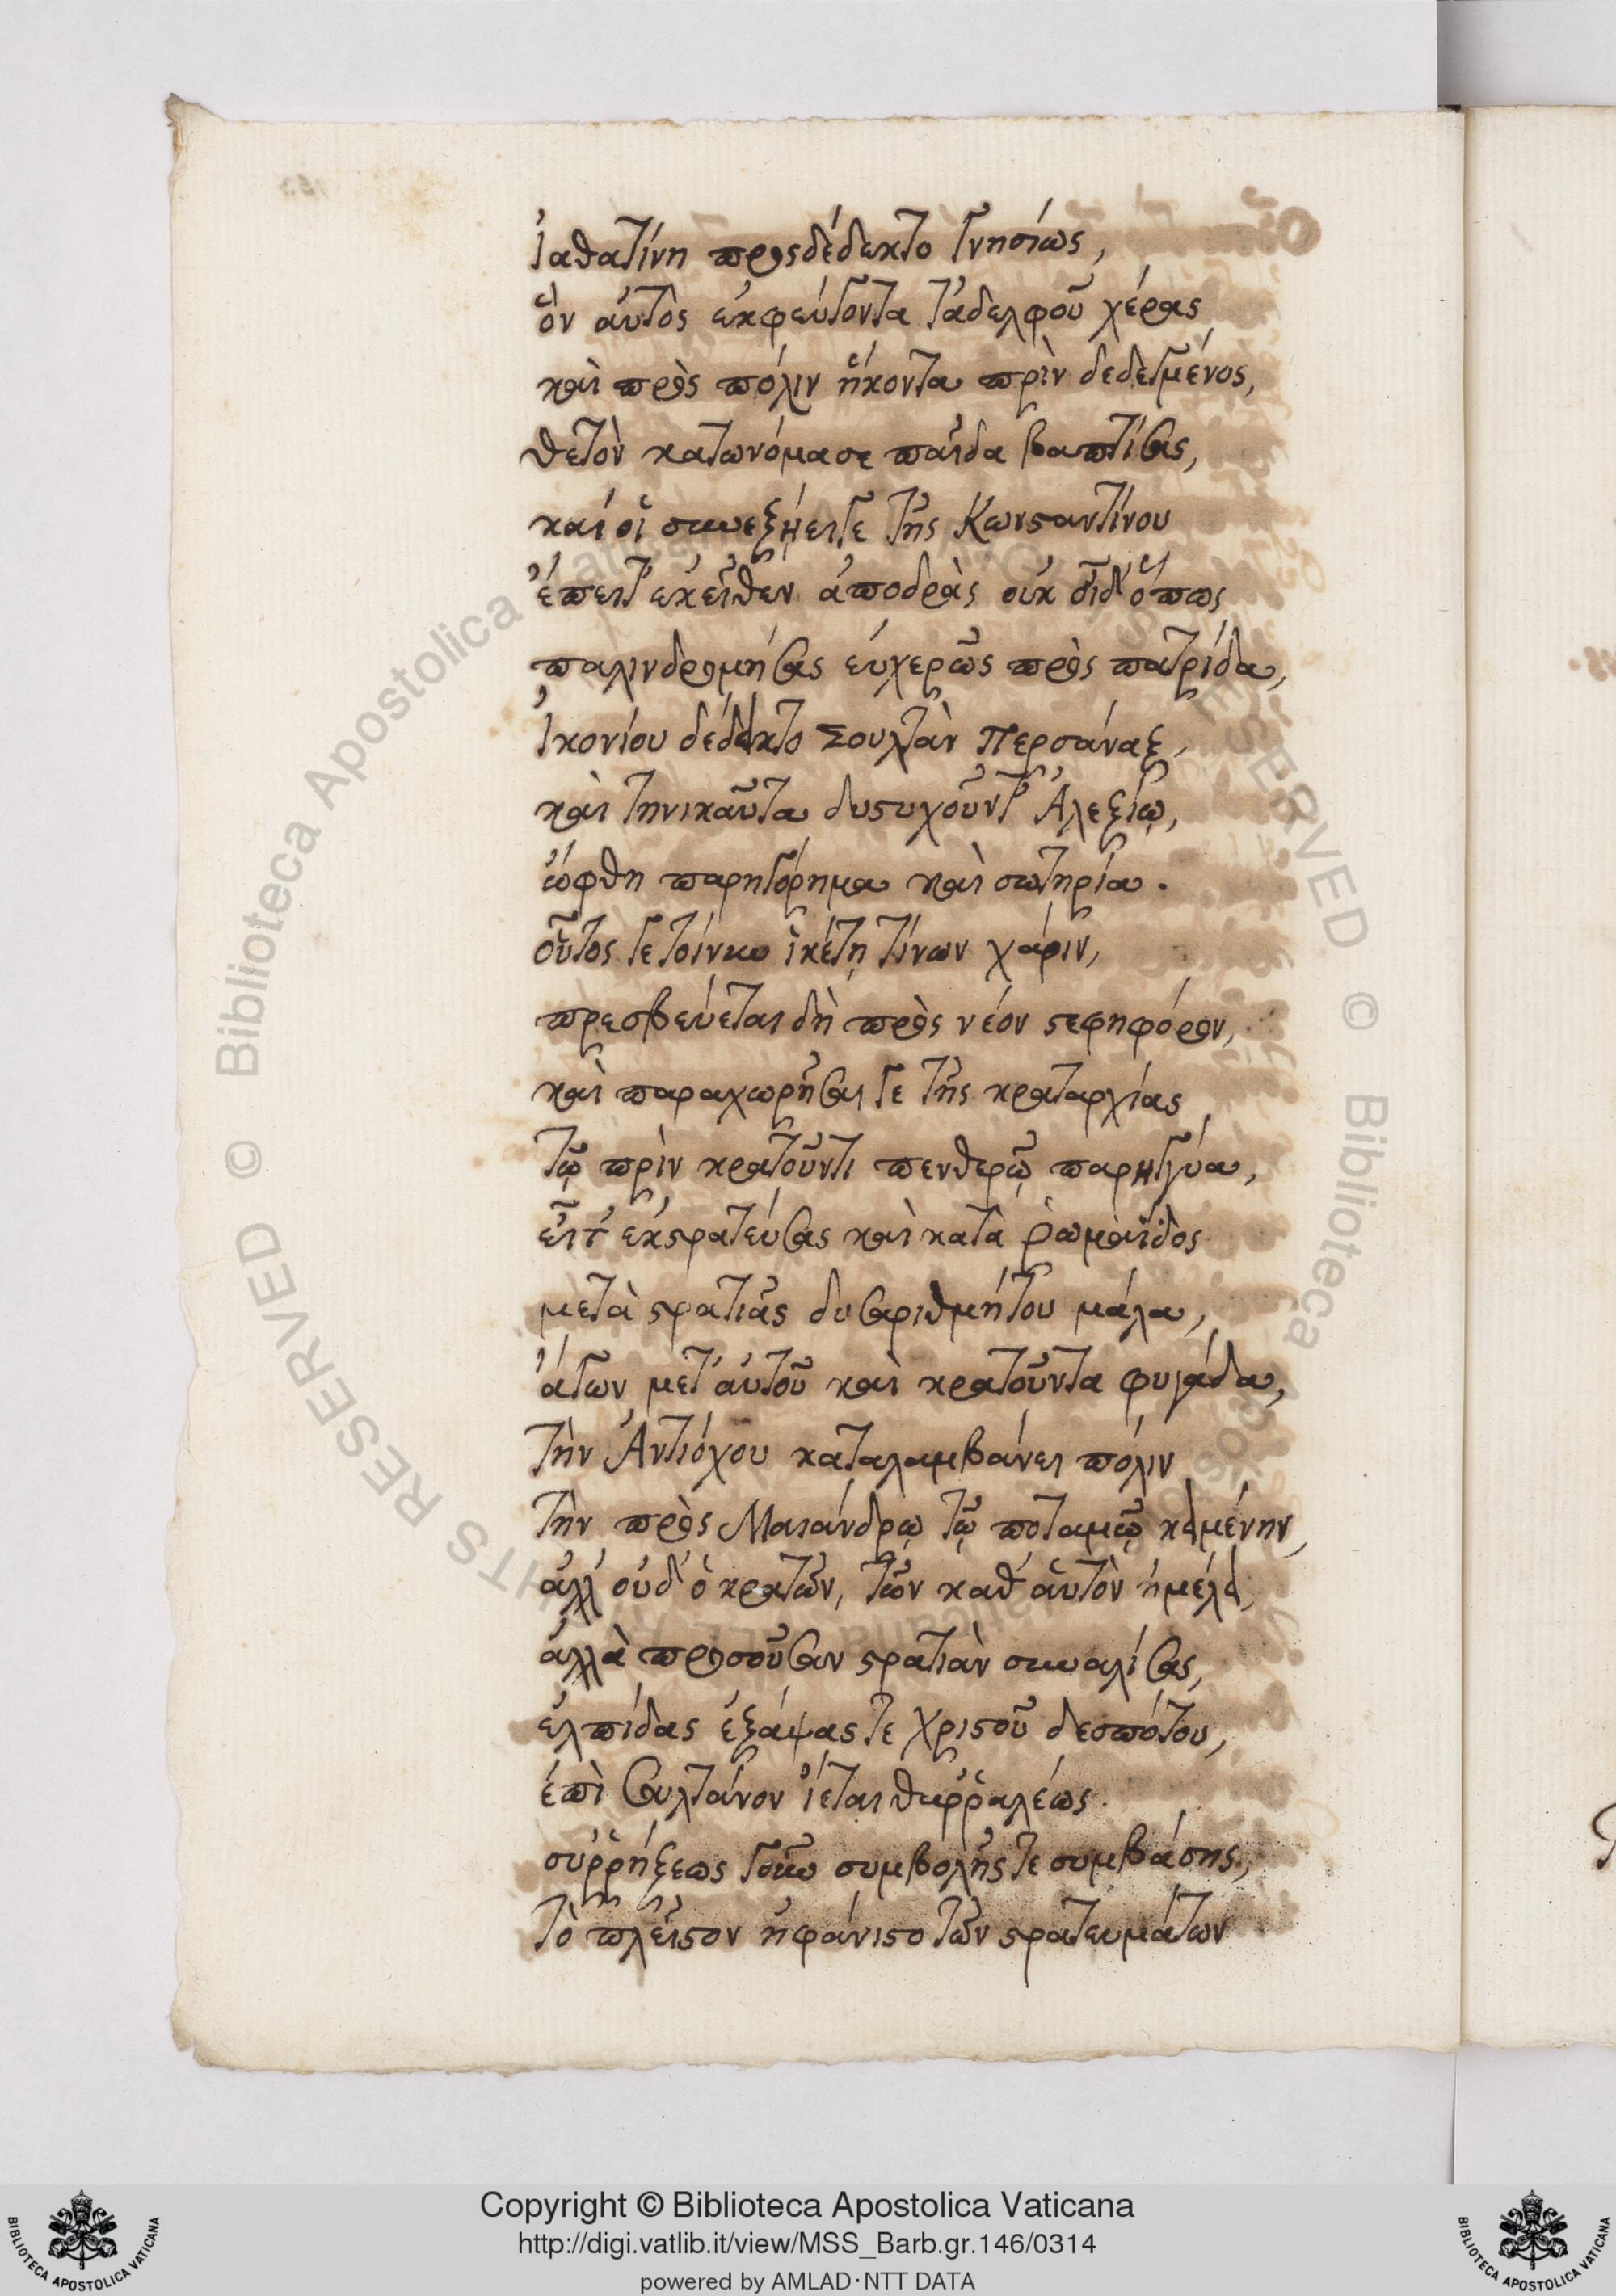 ἰαθατίνη προςδέδεκτο γνησίως,
ὃν αὐτὸς ἐκφεύγοντα τἀδελφοῦ χέρας
καὶ πρὸς πόλιν ἥκοντα πρὶν δεδεγμένος,
θετὸν κατωνόμασε παῖδα βαπτίσας,
καί οἱ συνεξήειγε τῆς Κωνσταντίνου
ἔπειτ' ἐκεῖθεν ἀποδρὰς οὐκ οἶδ' ὅπως
παλινδρομήσας εὐχερῶς πρὸς πατρίδα,
Ἰκονίου δέδεικτο Σουλτὰν Περσάναξ,
καὶ τηνικαῦτα δυστυχοῦντ' Ἀλεξίῳ,
ὤφθη παρηγόρημα καὶ σωτηρία.
οὗτος γε τοίνυν ἱκέτῃ τίνων χάριν,
πρεσβεύεται δὴ πρὸς νέον στεφηφόρον,
καὶ παραχωρῆσαι γε τῆς κραταρχίας
τῷ πρὶν κρατοῦντι πενθερῷ παρηγγύα,
εἶτ' ἐκστρατεύσας καὶ κατὰ ῥωμαΐδος
μετὰ στρατιᾶς δυσαριθμήτου μάλα,
ἄγων μετ' αὐτοῦ καὶ κρατοῦντα φυγάδα,
τὴν Ἀντιόχου καταλαμβάνει πόλιν
τὴν πρὸς Μαιάνδρῳ τῷ ποταμῷ κειμένην,
ἀλλ' οὐδ' ὁ κρατῶν, τῶν καθ' αὑτὸν ἠμέλει,
ἀλλὰ προσοῦσαν στρατιὰν συναλίσας,
ἐλπίδας ἐξάψας τε χριστοῦ δεσπότου,
ἐπὶ σουλτάνον ἵεται θαῤῥαλέως.
συῤῥήξεως γοῦν συμβολῆς τε συμβάσης,
τὸ πλεῖστον ἠφάνιστο τῶν στρατευμάτων
Copyright © Biblioteca Apostolica Vaticana
http://digi.vatlib.it/view/MSS_Barb.gr.146/0314
powered by AMLAD·NTT DATA